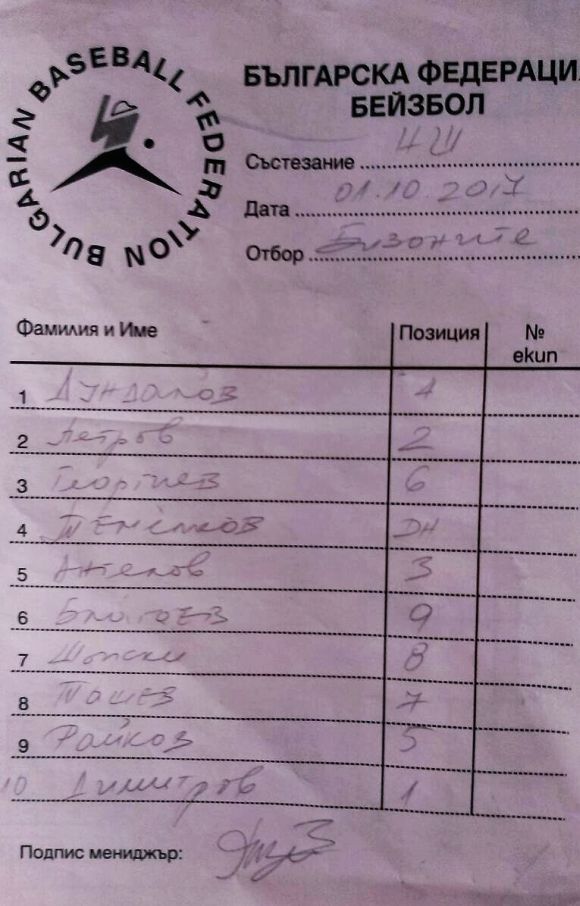 BULGARIAN BASEBALL FEDERATION
БЪЛГАРСКА ФЕДЕРАЦИ
БЕЙЗБОЛ
Състезание
Дата 01.10.2017
Отбор Бизоните
Фамилия и Име Позиция №
екип
1 Дундаков 4
2 Петров 2
3 Георгиев 6
4 DH
5 Ангелов 3
6 Благоев 9
7 Шопски 8
8 Ташев 7
9 Райков 5
10 Димитров 1
Подпис мениджър: